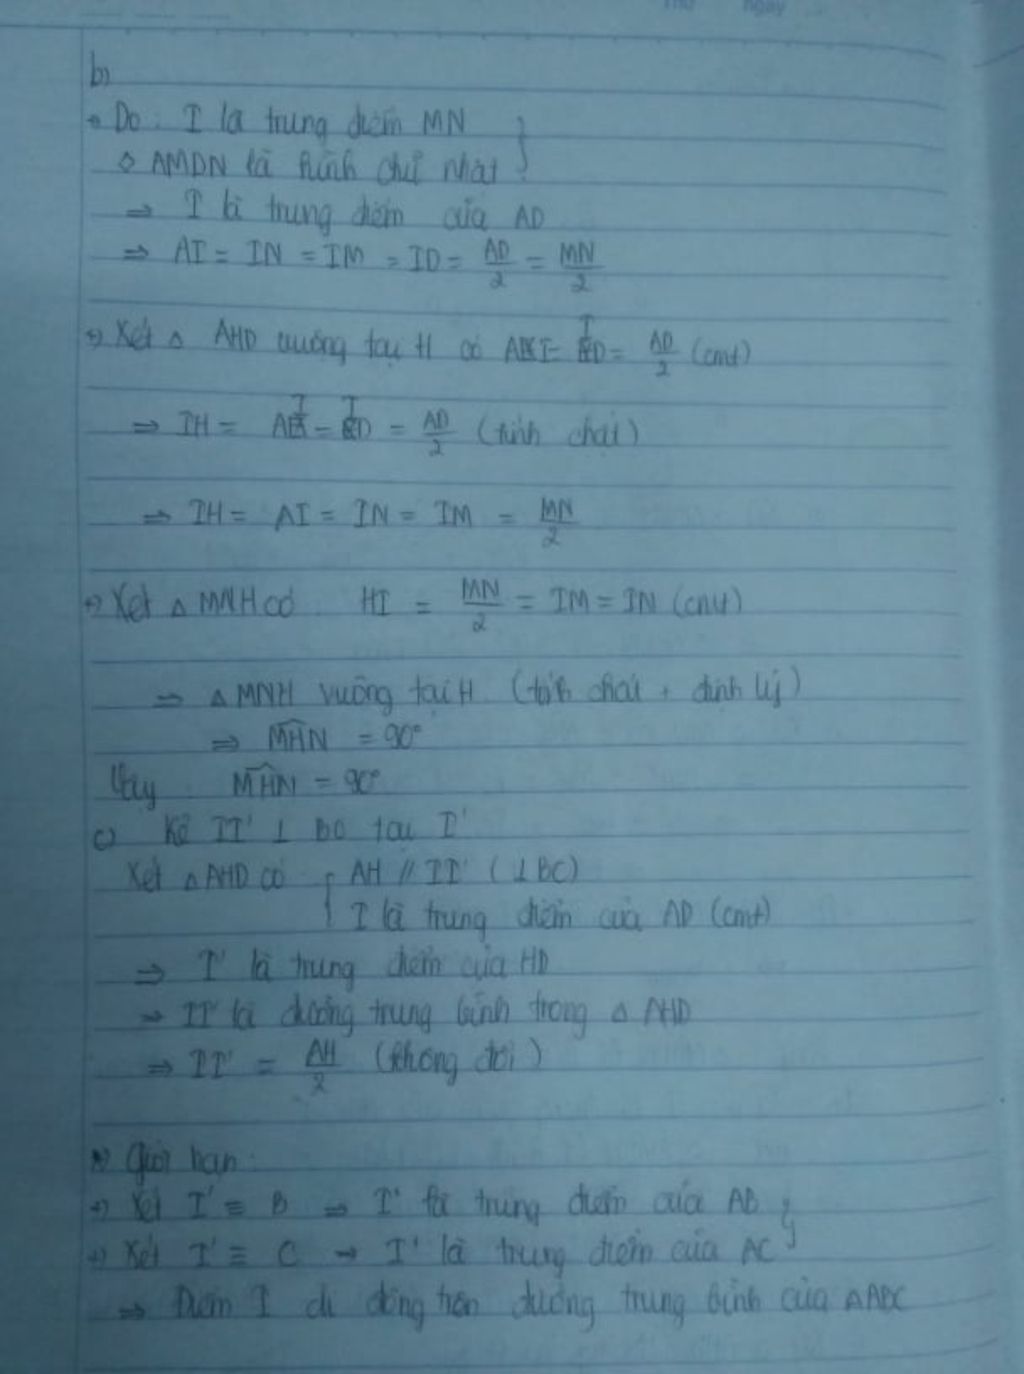 Thứ ngày
b)
+ Do : I là trung điểm MN
◊ AMDN là hình chữ nhật
⇒ I là trung điểm của AD
⇒ AI = IN = IM = ID = AD/2 = MN/2
+) Xét △ AHD vuông tại H có AI = ID = AD/2 (cmt)
⇒ IH = AI = ID = AD/2 (tính chất)
⇒ IH = AI = IN = IM = MN/2
+) Xét △ MNH có HI = MN/2 = IM = IN (cmt)
⇒ △ MNH vuông tại H (tính chất, định lý)
⇒ MHN = 90°
Vậy MHN = 90°
c) Kẻ II' ⊥ BC tại I'
Xét △ AHD có { AH // II' (⊥BC)
I là trung điểm của AD (cmt)
⇒ I' là trung điểm của HD
⇒ II' là đường trung bình trong △ AHD
⇒ II' = AH/2 (không đổi)
Giới hạn :
+) Xét I' ≡ B ⇒ I' là trung điểm của AB
+) Xét I' ≡ C → I' là trung điểm của AC
⇒ Điểm I di động trên đường trung bình của △ABC